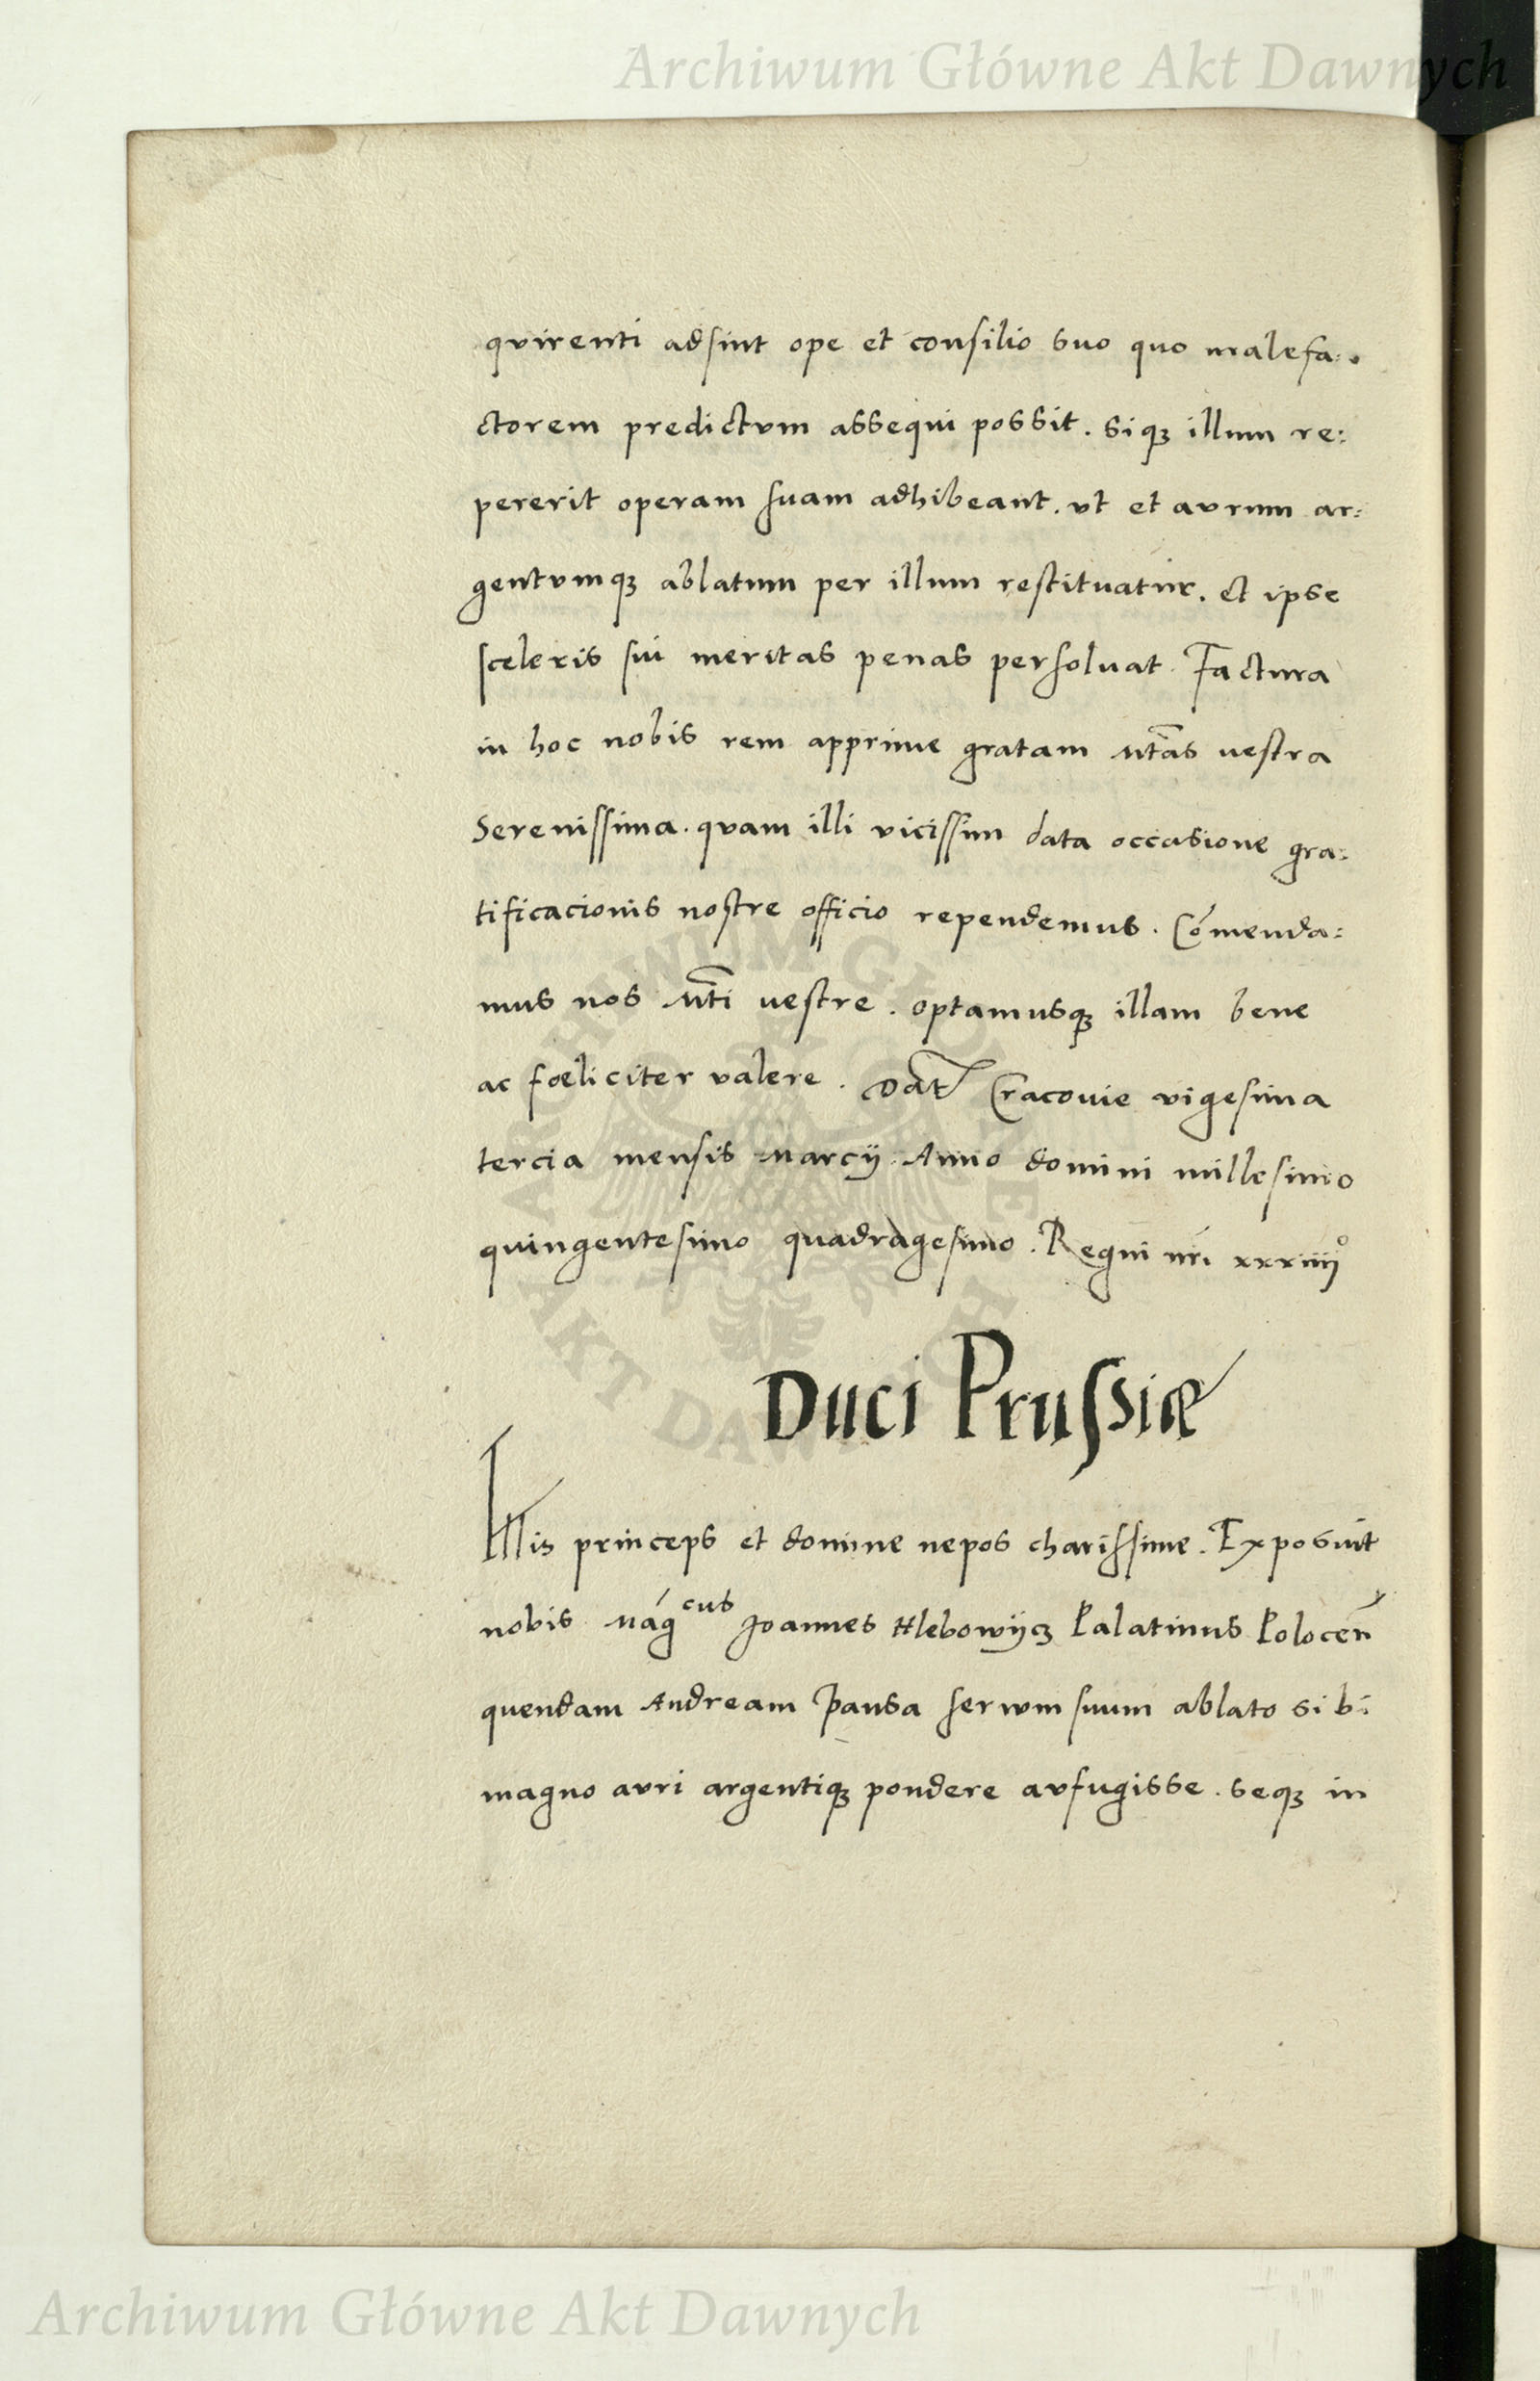 Archiwum Główne Akt Dawnych
quirenti adsint ope et consilio suo quo malefa:
ctorem predictum assequi possit. Siqꝫ illum re:
pererit operam suam adhibeant. vt et aurum ar:
gentumqꝫ ablatum per illum restituatur. et ipse
sceleris sui meritas penas persoluat. Factura
in hoc nobis rem apprime gratam Mtas vestra
Serenissima. quam illi vicissim data occasione gra:
tificacionis nostre officio rependemus. Comenda:
mus nos Mti vestre. optamusqꝫ illam bene
ac fœliciter valere. Dat Cracouie vigesima
tercia mensis Marcij Anno domini millesimo
quingentesimo quadragesimo. Regni nri xxxiiijº
Duci Prussiæ
Illis princeps et domine nepos charissime. Exposuit
nobis Magcus Joannes Hlebowijcz Palatinus Polocen
quendam Andream Pansa seruum suum ablato sibi
magno auri argentiqꝫ pondere aufugisse. seqꝫ in
ARCHIWUM GŁÓWNE
AKT DAWNYCH
Archiwum Główne Akt Dawnych